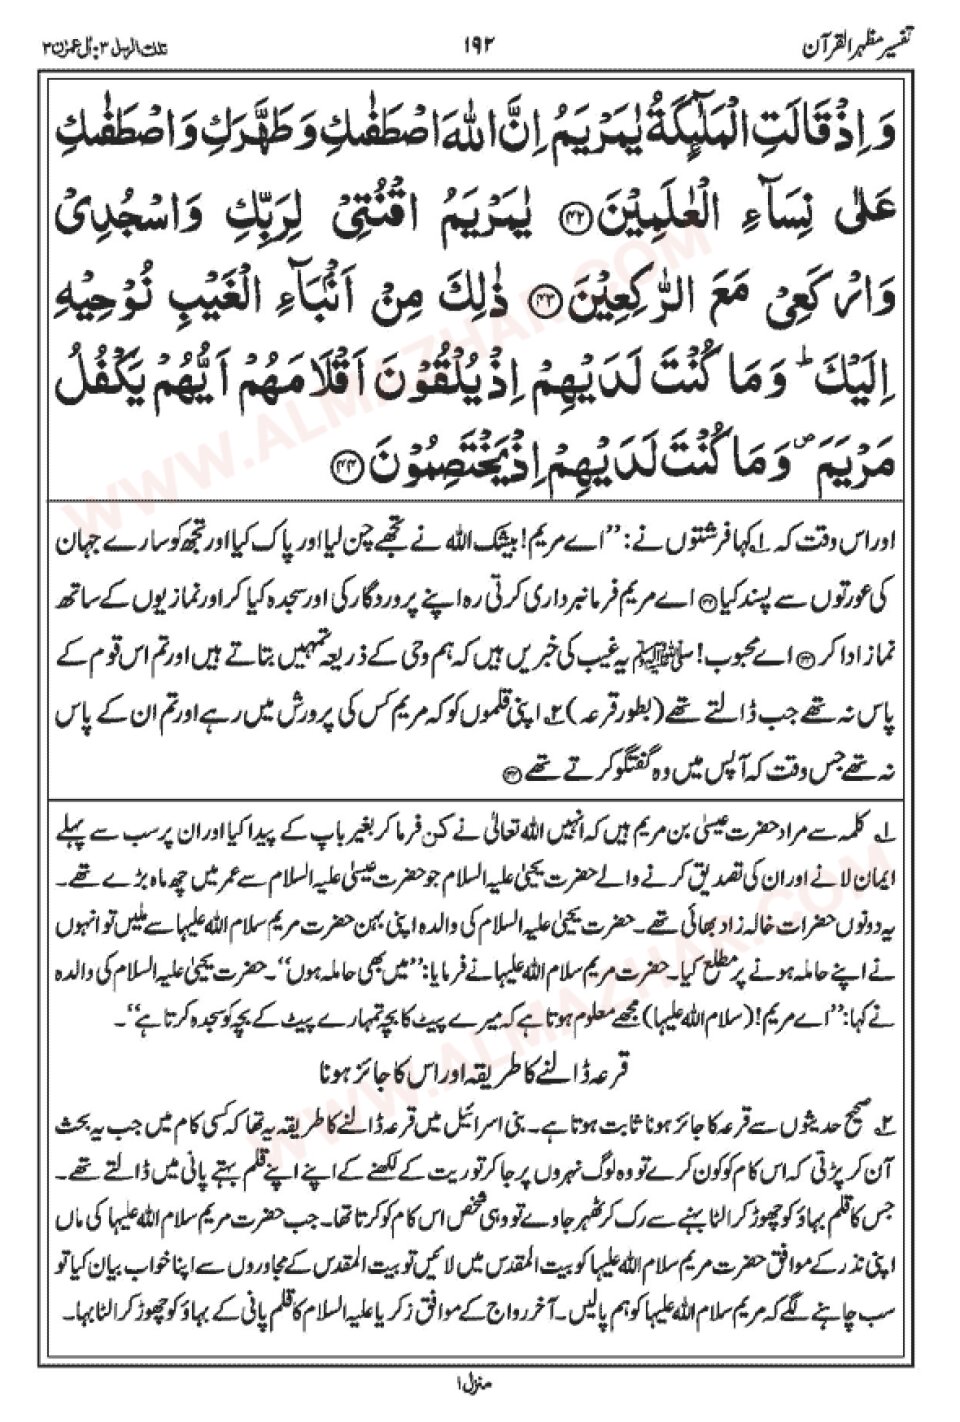 تفسیر مظہر القرآن
۱۹۲
تلك الرسل ۳ : اٰل عمرٰن ۳
وَاِذْ قَالَتِ الْمَلٰٓئِكَةُ يٰمَرْيَمُ اِنَّ اللّٰهَ اصْطَفٰىكِ وَطَهَّرَكِ وَاصْطَفٰىكِ
عَلٰى نِسَآءِ الْعٰلَمِيْنَ ﴿۴۲﴾ يٰمَرْيَمُ اقْنُتِيْ لِرَبِّكِ وَاسْجُدِيْ
وَارْكَعِيْ مَعَ الرّٰكِعِيْنَ ﴿۴۳﴾ ذٰلِكَ مِنْ اَنْۢبَآءِ الْغَيْبِ نُوْحِيْهِ
اِلَيْكَ ؕ وَمَا كُنْتَ لَدَيْهِمْ اِذْ يُلْقُوْنَ اَقْلَامَهُمْ اَيُّهُمْ يَكْفُلُ
مَرْيَمَ ۪ وَمَا كُنْتَ لَدَيْهِمْ اِذْ يَخْتَصِمُوْنَ ﴿۴۴﴾
اور اس وقت کہ ۱؎ کہا فرشتوں نے : ”اے مریم! بیشک اللہ نے تجھے چن لیا اور پاک کیا اور تجھ کو سارے جہان
کی عورتوں سے پسند کیا ﴿۴۲﴾ اے مریم فرمانبرداری کرتی رہ اپنے پروردگار کی اور سجدہ کیا کر اور نمازیوں کے ساتھ
نماز ادا کر ﴿۴۳﴾ اے محبوب! ﷺ یہ غیب کی خبریں ہیں کہ ہم وحی کے ذریعہ تمہیں بتاتے ہیں اور تم اس قوم کے
پاس نہ تھے جب ڈالتے تھے (بطور قرعہ) ۲؎ اپنی قلموں کو کہ مریم کس کی پرورش میں رہے اور تم ان کے پاس
نہ تھے جس وقت کہ آپس میں وہ گفتگو کرتے تھے ﴿۴۴﴾
۱؎ کلمہ سے مراد حضرت عیسیٰ بن مریم ہیں کہ انہیں اللہ تعالیٰ نے کن فرما کر بغیر باپ کے پیدا کیا اور ان پر سب سے پہلے
ایمان لانے اور ان کی تصدیق کرنے والے حضرت یحییٰ علیہ السلام جو حضرت عیسیٰ علیہ السلام سے عمر میں چھ ماہ بڑے تھے۔
یہ دونوں حضرات خالہ زاد بھائی تھے۔ حضرت یحییٰ علیہ السلام کی والدہ اپنی بہن حضرت مریم سلام اللہ علیہا سے ملیں تو انہوں
نے اپنے حاملہ ہونے پر مطلع کیا۔ حضرت مریم سلام اللہ علیہا نے فرمایا: ”میں بھی حاملہ ہوں“۔ حضرت یحییٰ علیہ السلام کی والدہ
نے کہا: ”اے مریم! (سلام اللہ علیہا) مجھے معلوم ہوتا ہے کہ میرے پیٹ کا بچہ تمہارے پیٹ کے بچہ کو سجدہ کرتا ہے“۔
قرعہ ڈالنے کا طریقہ اور اس کا جائز ہونا
۲؎ صحیح حدیثوں سے قرعہ کا جائز ہونا ثابت ہوتا ہے۔ بنی اسرائیل میں قرعہ ڈالنے کا طریقہ یہ تھا کہ کسی کام میں جب یہ بحث
آن کر پڑتی کہ اس کام کو کون کرے تو وہ لوگ نہروں پر جا کر توریت کے لکھنے کے اپنے اپنے قلم بہتے پانی میں ڈالتے تھے۔
جس کا قلم بہاؤ کو چھوڑ کر الٹا بہنے سے رک کر ٹھہر جاوے تو وہی شخص اس کام کو کرتا تھا۔ جب حضرت مریم سلام اللہ علیہا کی ماں
اپنی نذر کے موافق حضرت مریم سلام اللہ علیہا کو بیت المقدس میں لائیں تو بیت المقدس کے مجاوروں سے اپنا خواب بیان کیا تو
سب چاہنے لگے کہ مریم سلام اللہ علیہا کو ہم پالیں۔ آخر رواج کے موافق زکریا علیہ السلام کا قلم پانی کے بہاؤ کو چھوڑ کر الٹا بہا۔
منزل ۱
WWW.ALMAZHAR.COM
WWW.ALMAZHAR.COM